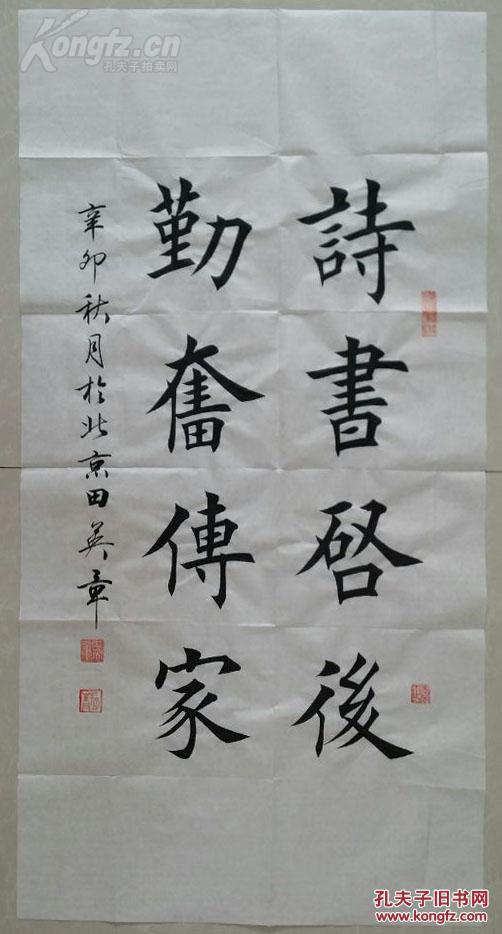 詩書啓後
勤奮傳家
辛卯秋月於北京田英章
Kongfz.cn
孔夫子拍卖网
孔夫子旧书网
www.kongfz.com